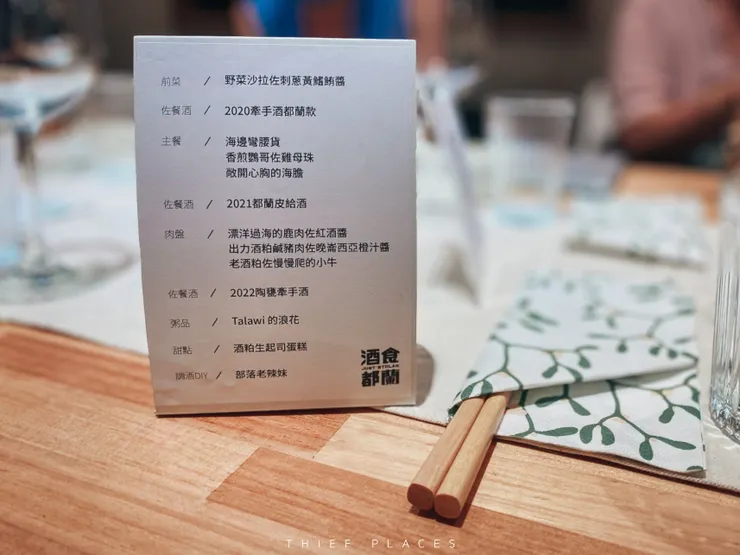 前菜 / 野菜沙拉佐刺蔥黃鰭鮪醬
佐餐酒 / 2020牽手酒都蘭款
主餐 / 海邊彎腰貨
香煎鸚哥佐雞母珠
敞開心胸的海膽
佐餐酒 / 2021都蘭皮給酒
肉盤 / 漂洋過海的鹿肉佐紅酒醬
出力酒粕鹹豬肉佐晚崙西亞橙汁醬
老酒粕佐慢慢爬的小牛
佐餐酒 / 2022陶甕牽手酒
粥品 / Talawi 的浪花
甜點 / 酒粕生起司蛋糕
調酒DIY / 部落老辣妹
酒食
JUST ETOLAN
都蘭
THIEF PLACES